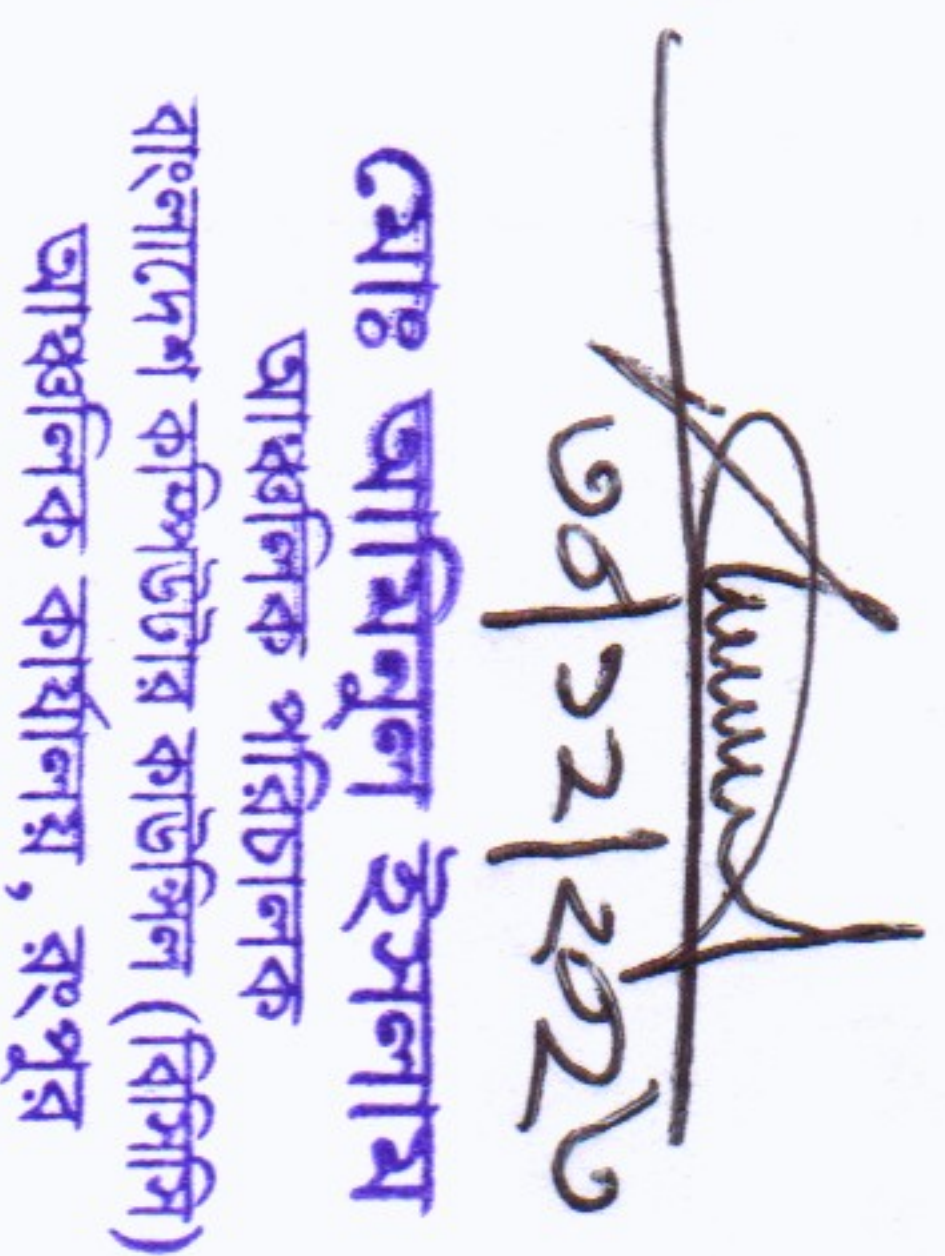 ৩০/১২/২০২৬
মোঃ আমিনুল ইসলাম
আঞ্চলিক পরিচালক
বাংলাদেশ কম্পিউটার কাউন্সিল (বিসিসি)
আঞ্চলিক কার্যালয়, রংপুর